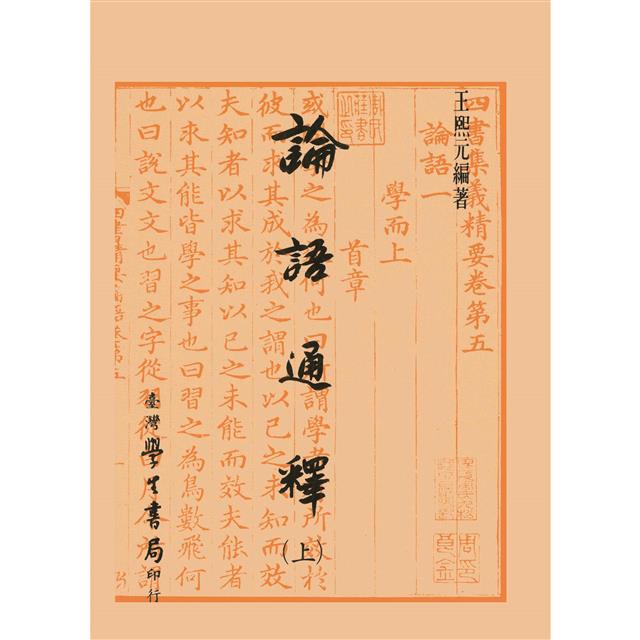 王熙元編著
論語通釋
（上）
臺灣學生書局印行
四書集義精要卷第五
論語一
學而上
首章
彼而求其成於我之謂也以己之未知而效
夫知者以求其知以己之未能而效夫能者
以求其能皆學之事也曰習之為鳥數飛何
也曰說文文也習之字從